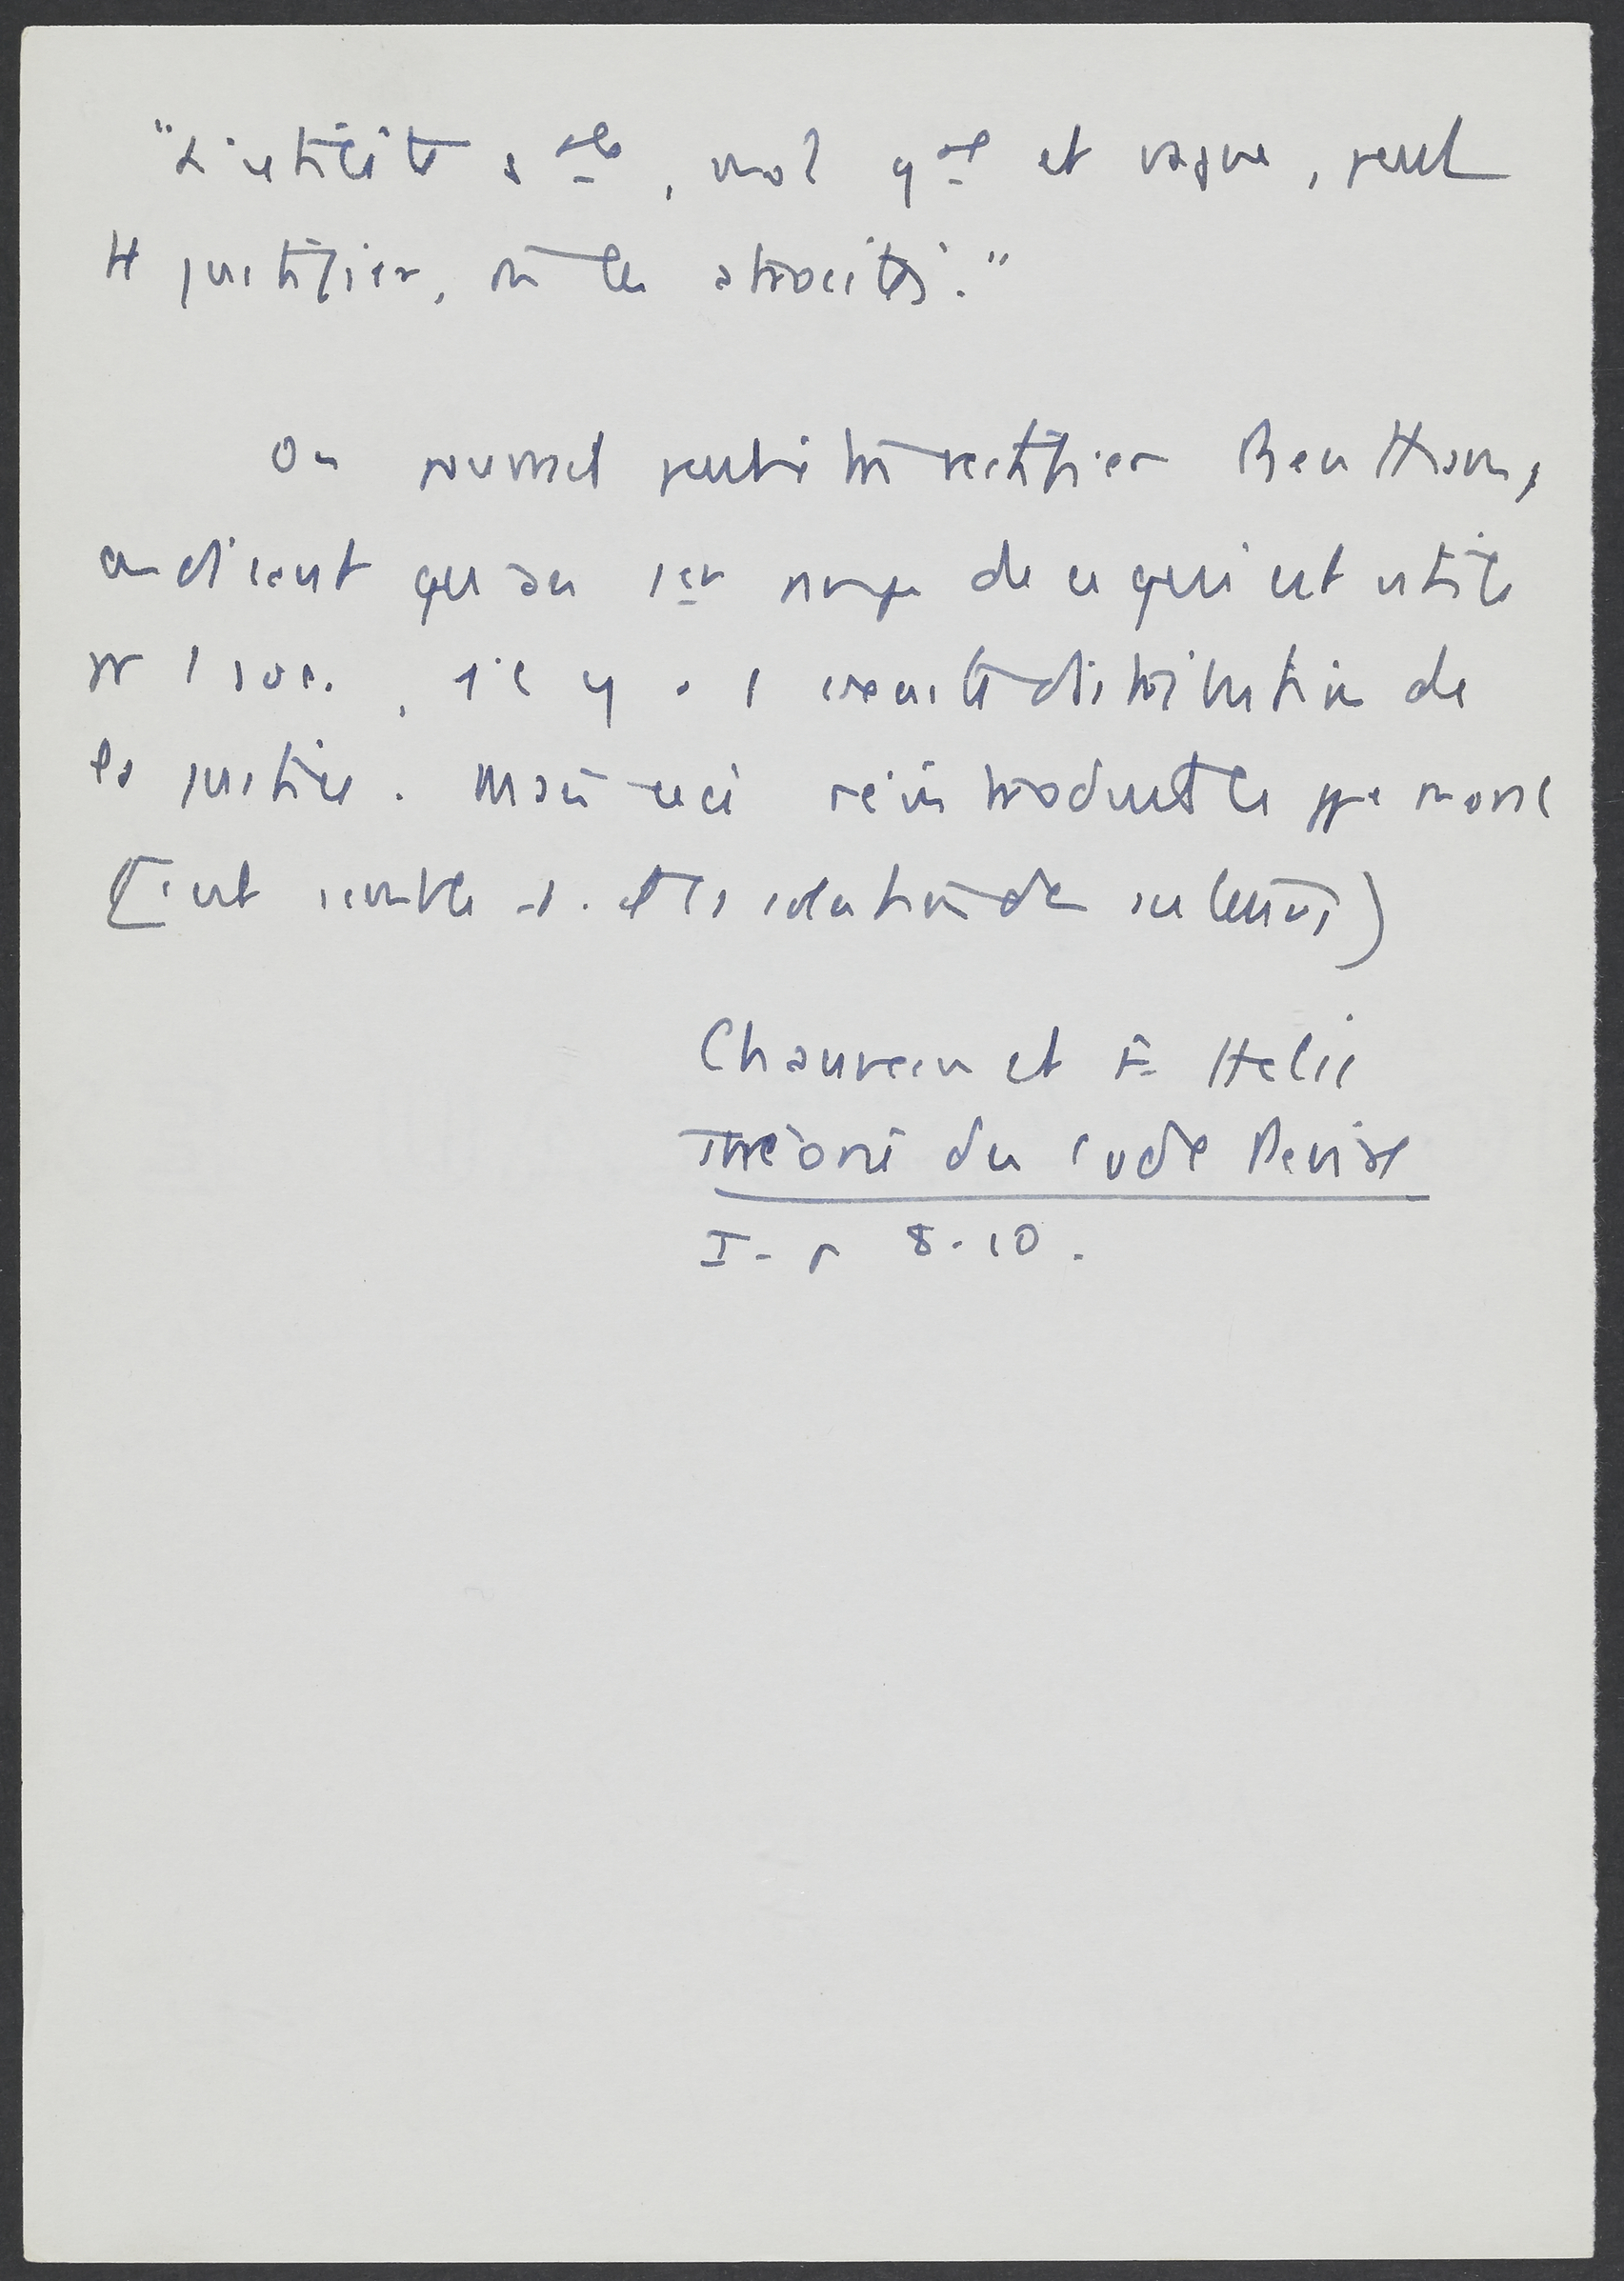 "L'utilité s ale, mot gal et vague, peut
tt justifier, m les atrocités."
On pourrait peut-être rectifier Bentham,
en disant qu'au 1er rang de ce qui est utile
pr 1 soc., il y a 1 exacte distribution de
la justice. Mais ceci réintroduit le ppe moral
(C'est semble-t-il la solution de
Chauveau et F. Helie
Théorie du Code Pénal
I - p 8-10.